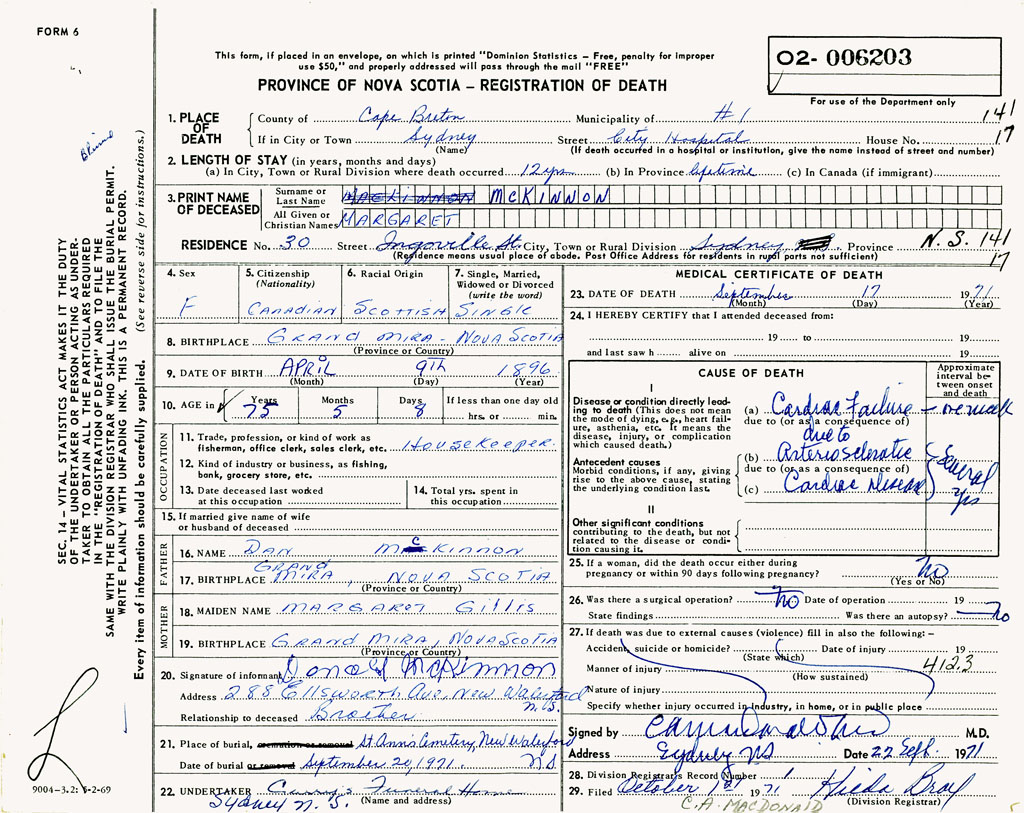 FORM 6
This form, if placed in an envelope, on which is printed "Dominion Statistics – Free, penalty for improper
use $50," and properly addressed will pass through the mail "FREE"
PROVINCE OF NOVA SCOTIA – REGISTRATION OF DEATH
02- 006203
For use of the Department only
1. PLACE OF DEATH
County of Cape Breton Municipality of #1 141
If in City or Town Sydney Street City Hospital House No. 17
(Name) (If death occurred in a hospital or institution, give the name instead of street and number)
2. LENGTH OF STAY (in years, months and days)
(a) In City, Town or Rural Division where death occurred 12 yrs (b) In Province lifetime (c) In Canada (if immigrant)
3. PRINT NAME OF DECEASED
Surname or Last Name MACKINNON MCKINNON
All Given or Christian Names MARGARET
RESIDENCE No. 30 Street Ingoville St. City, Town or Rural Division Sydney Province N.S. 141
(Residence means usual place of abode. Post Office Address for residents in rural parts not sufficient) 17
4. Sex
F
5. Citizenship (Nationality)
CANADIAN
6. Racial Origin
SCOTTISH
7. Single, Married, Widowed or Divorced (write the word)
SINGLE
8. BIRTHPLACE GRAND MIRA - NOVA SCOTIA
(Province or Country)
9. DATE OF BIRTH APRIL 9TH 1896
(Month) (Day) (Year)
10. AGE in Years 75 Months 5 Days 8 If less than one day old hrs. or min.
OCCUPATION
11. Trade, profession, or kind of work as fisherman, office clerk, sales clerk, etc. HOUSEKEEPER
12. Kind of industry or business, as fishing, bank, grocery store, etc.
13. Date deceased last worked at this occupation
14. Total yrs. spent in this occupation
15. If married give name of wife or husband of deceased
FATHER
16. NAME DAN McKINNON
17. BIRTHPLACE GRAND MIRA, NOVA SCOTIA
(Province or Country)
MOTHER
18. MAIDEN NAME MARGARET Gillis
19. BIRTHPLACE GRAND MIRA, NOVA SCOTIA
(Province or Country)
20. Signature of informant Donald McKinnon
Address 288 Ellsworth Ave, New Waterford N.S.
Relationship to deceased Brother
21. Place of burial, cremation or removal St Ann's Cemetery, New Waterford
Date of burial or removal September 20, 1971. NS
22. UNDERTAKER Funeral Home
Sydney N.S. (Name and address)
MEDICAL CERTIFICATE OF DEATH
23. DATE OF DEATH September 17 1971
(Month) (Day) (Year)
24. I HEREBY CERTIFY that I attended deceased from:
19 to 19
and last saw h alive on 19
CAUSE OF DEATH
Approximate interval between onset and death
I
Disease or condition directly leading to death (This does not mean the mode of dying, e.g., heart failure, asthenia, etc. It means the disease, injury, or complication which caused death.)
(a) Cardiac Failure - one week
due to (or as a consequence of)
due to
Antecedent causes
Morbid conditions, if any, giving rise to the above cause, stating the underlying condition last.
(b) Arteriosclerotic
due to (or as a consequence of)
(c) Cardiac Disease
Several yrs
II
Other significant conditions contributing to the death, but not related to the disease or condition causing it.
25. If a woman, did the death occur either during pregnancy or within 90 days following pregnancy? no
(Yes or No)
26. Was there a surgical operation? no Date of operation 19
State findings Was there an autopsy? no
27. If death was due to external causes (violence) fill in also the following: –
Accident, suicide or homicide? Date of injury 19
(State which) 4123
Manner of injury
(How sustained)
Nature of injury
Specify whether injury occurred in industry, in home, or in public place
Signed by M.D.
Address Sydney NS Date 22 Sept. 1971
28. Division Registrar's Record Number 1
29. Filed October 1st 1971 Hilda Bray
C.A. MACDONALD (Division Registrar)
SEC. 14 – VITAL STATISTICS ACT MAKES IT THE DUTY
OF THE UNDERTAKER OR PERSON ACTING AS UNDER-
TAKER TO OBTAIN ALL THE PARTICULARS REQUIRED
IN THE "REGISTRATION OF DEATH" AND TO FILE THE
SAME WITH THE DIVISION REGISTRAR WHO SHALL ISSUE THE BURIAL PERMIT.
WRITE PLAINLY WITH UNFADING INK. THIS IS A PERMANENT RECORD.
Every item of information should be carefully supplied. (See reverse side for instructions.)
9004-3.2: 5-2-69